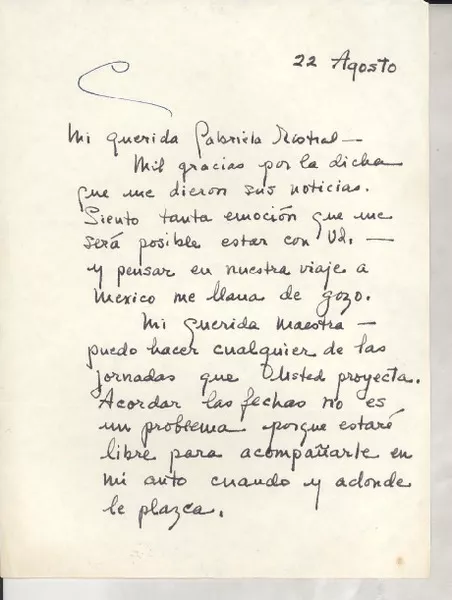 22 Agosto
Mi querida Gabriela Mistral —
Mil gracias por la dicha
que me dieron sus noticias.
Siento tanta emoción que me
será posible estar con Ud. —
y pensar en nuestra viaje a
Mexico me llana de gozo.
Mi querida maestra —
puedo hacer cualquier de las
jornadas que Usted proyecta.
Acordar las fechas no es
un problema porque estaré
libre para acompañarte en
mi auto cuando y adonde
le plazca.